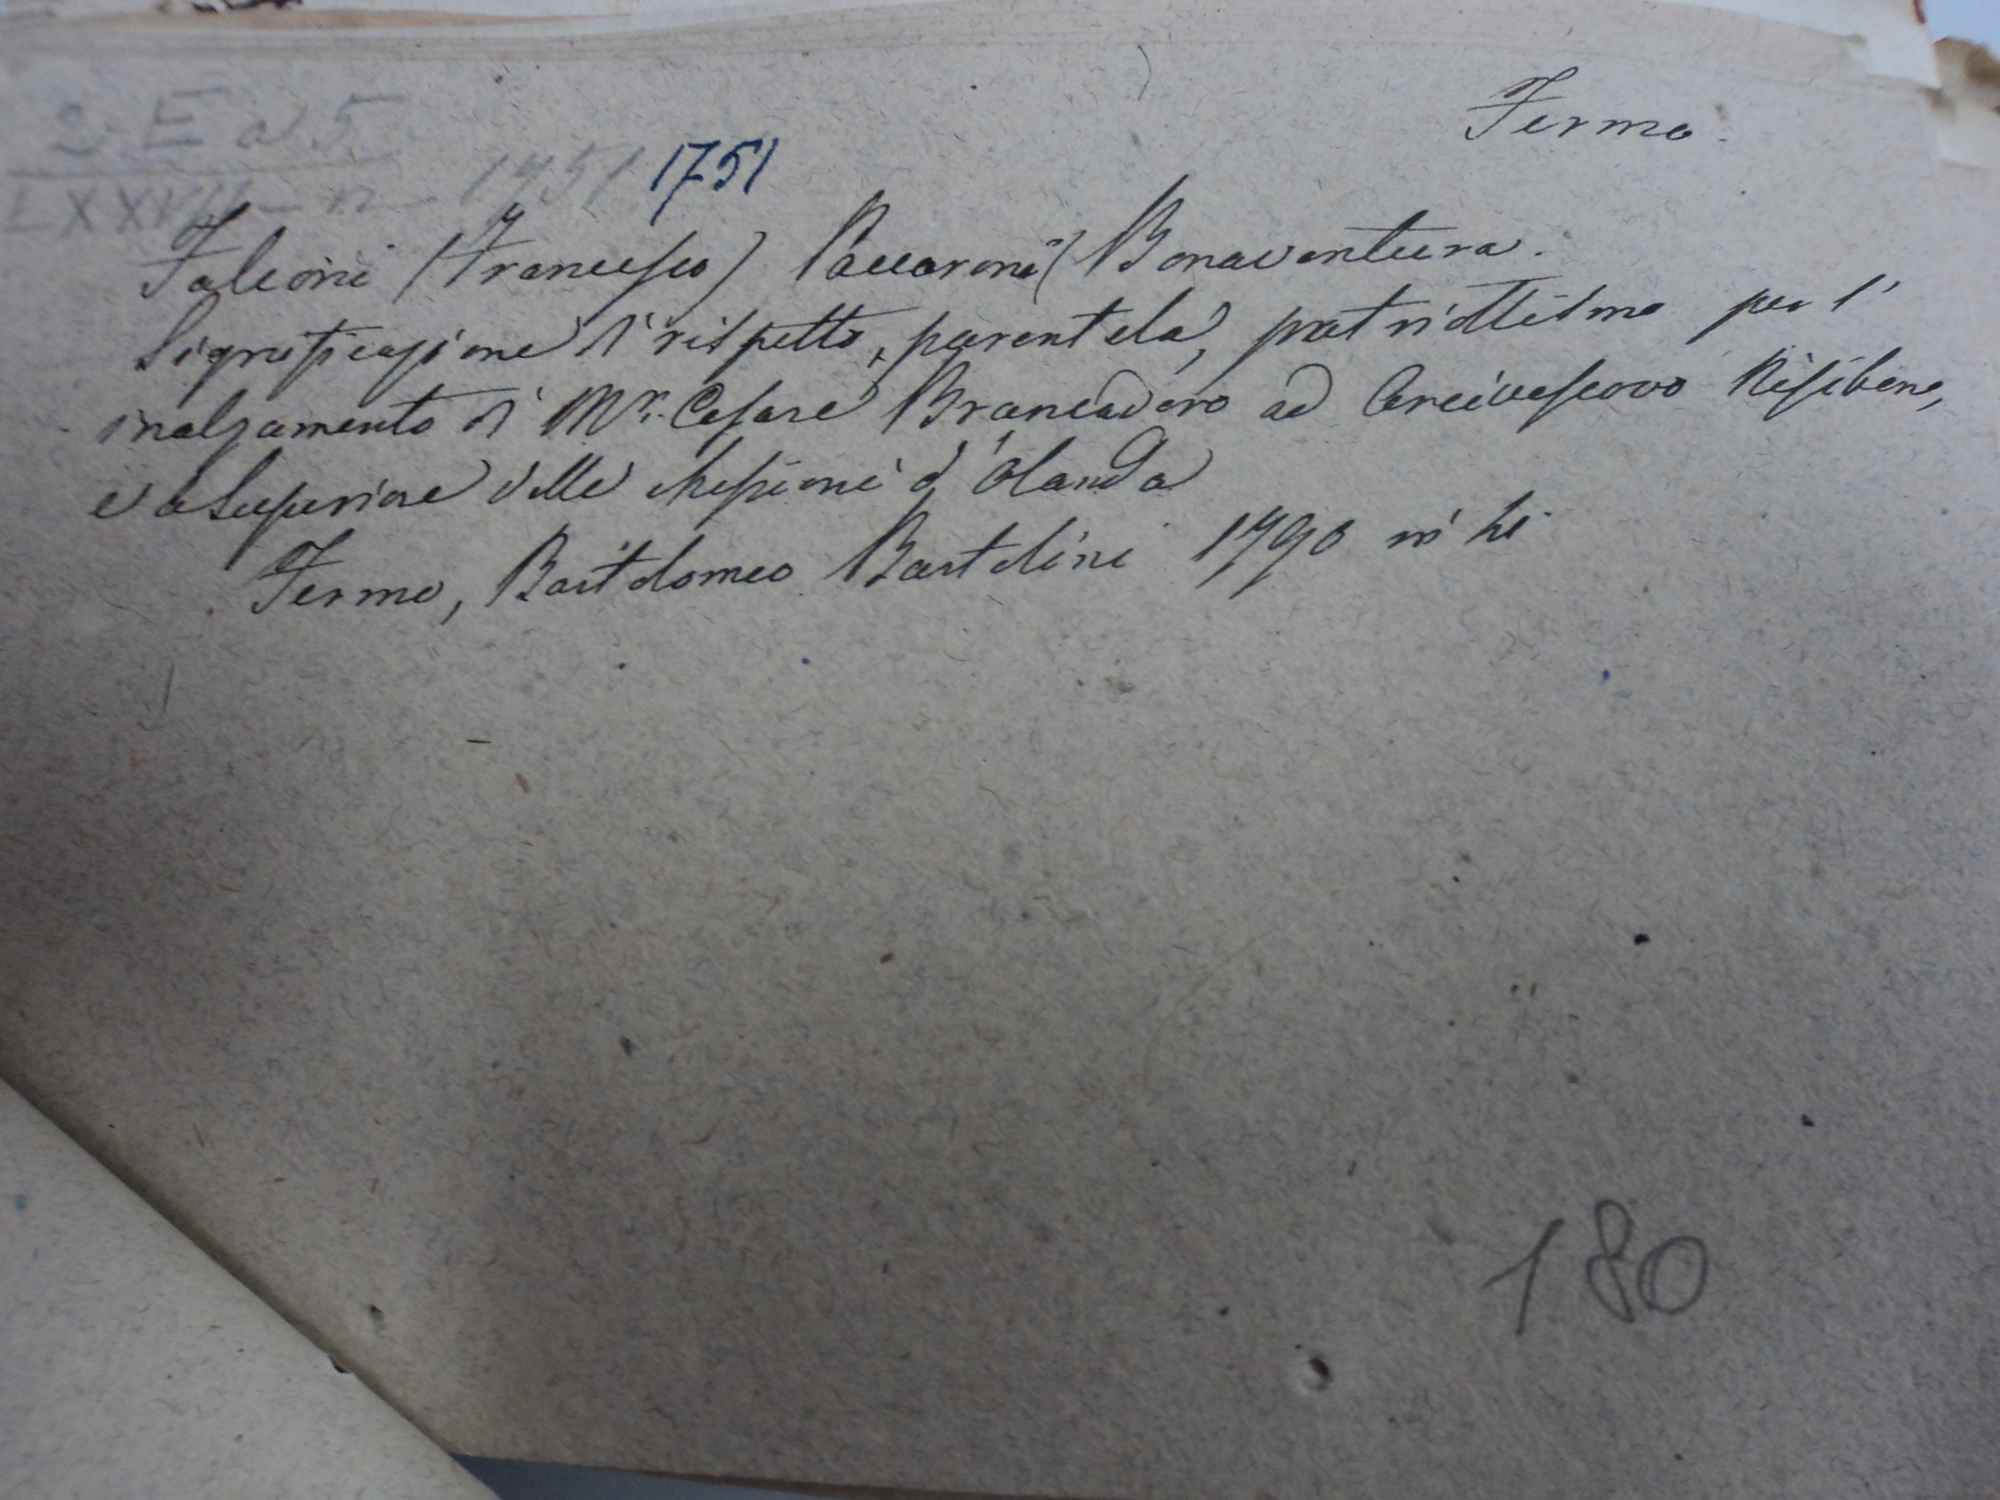 Fermo.
2 E d 5
LXXVII - n. 1751 1751
Falconi (Francesco) Paccaroni (Bonaventura.
Significazione di rispetto, parentela, patriottismo per l'
inalzamento di Mr. Cesare Brancadoro ad Arcivescovo Nisibeno,
e a Superiore delle Missioni d'Olanda
Fermo, Bartolomeo Bartolini 1790 in
180